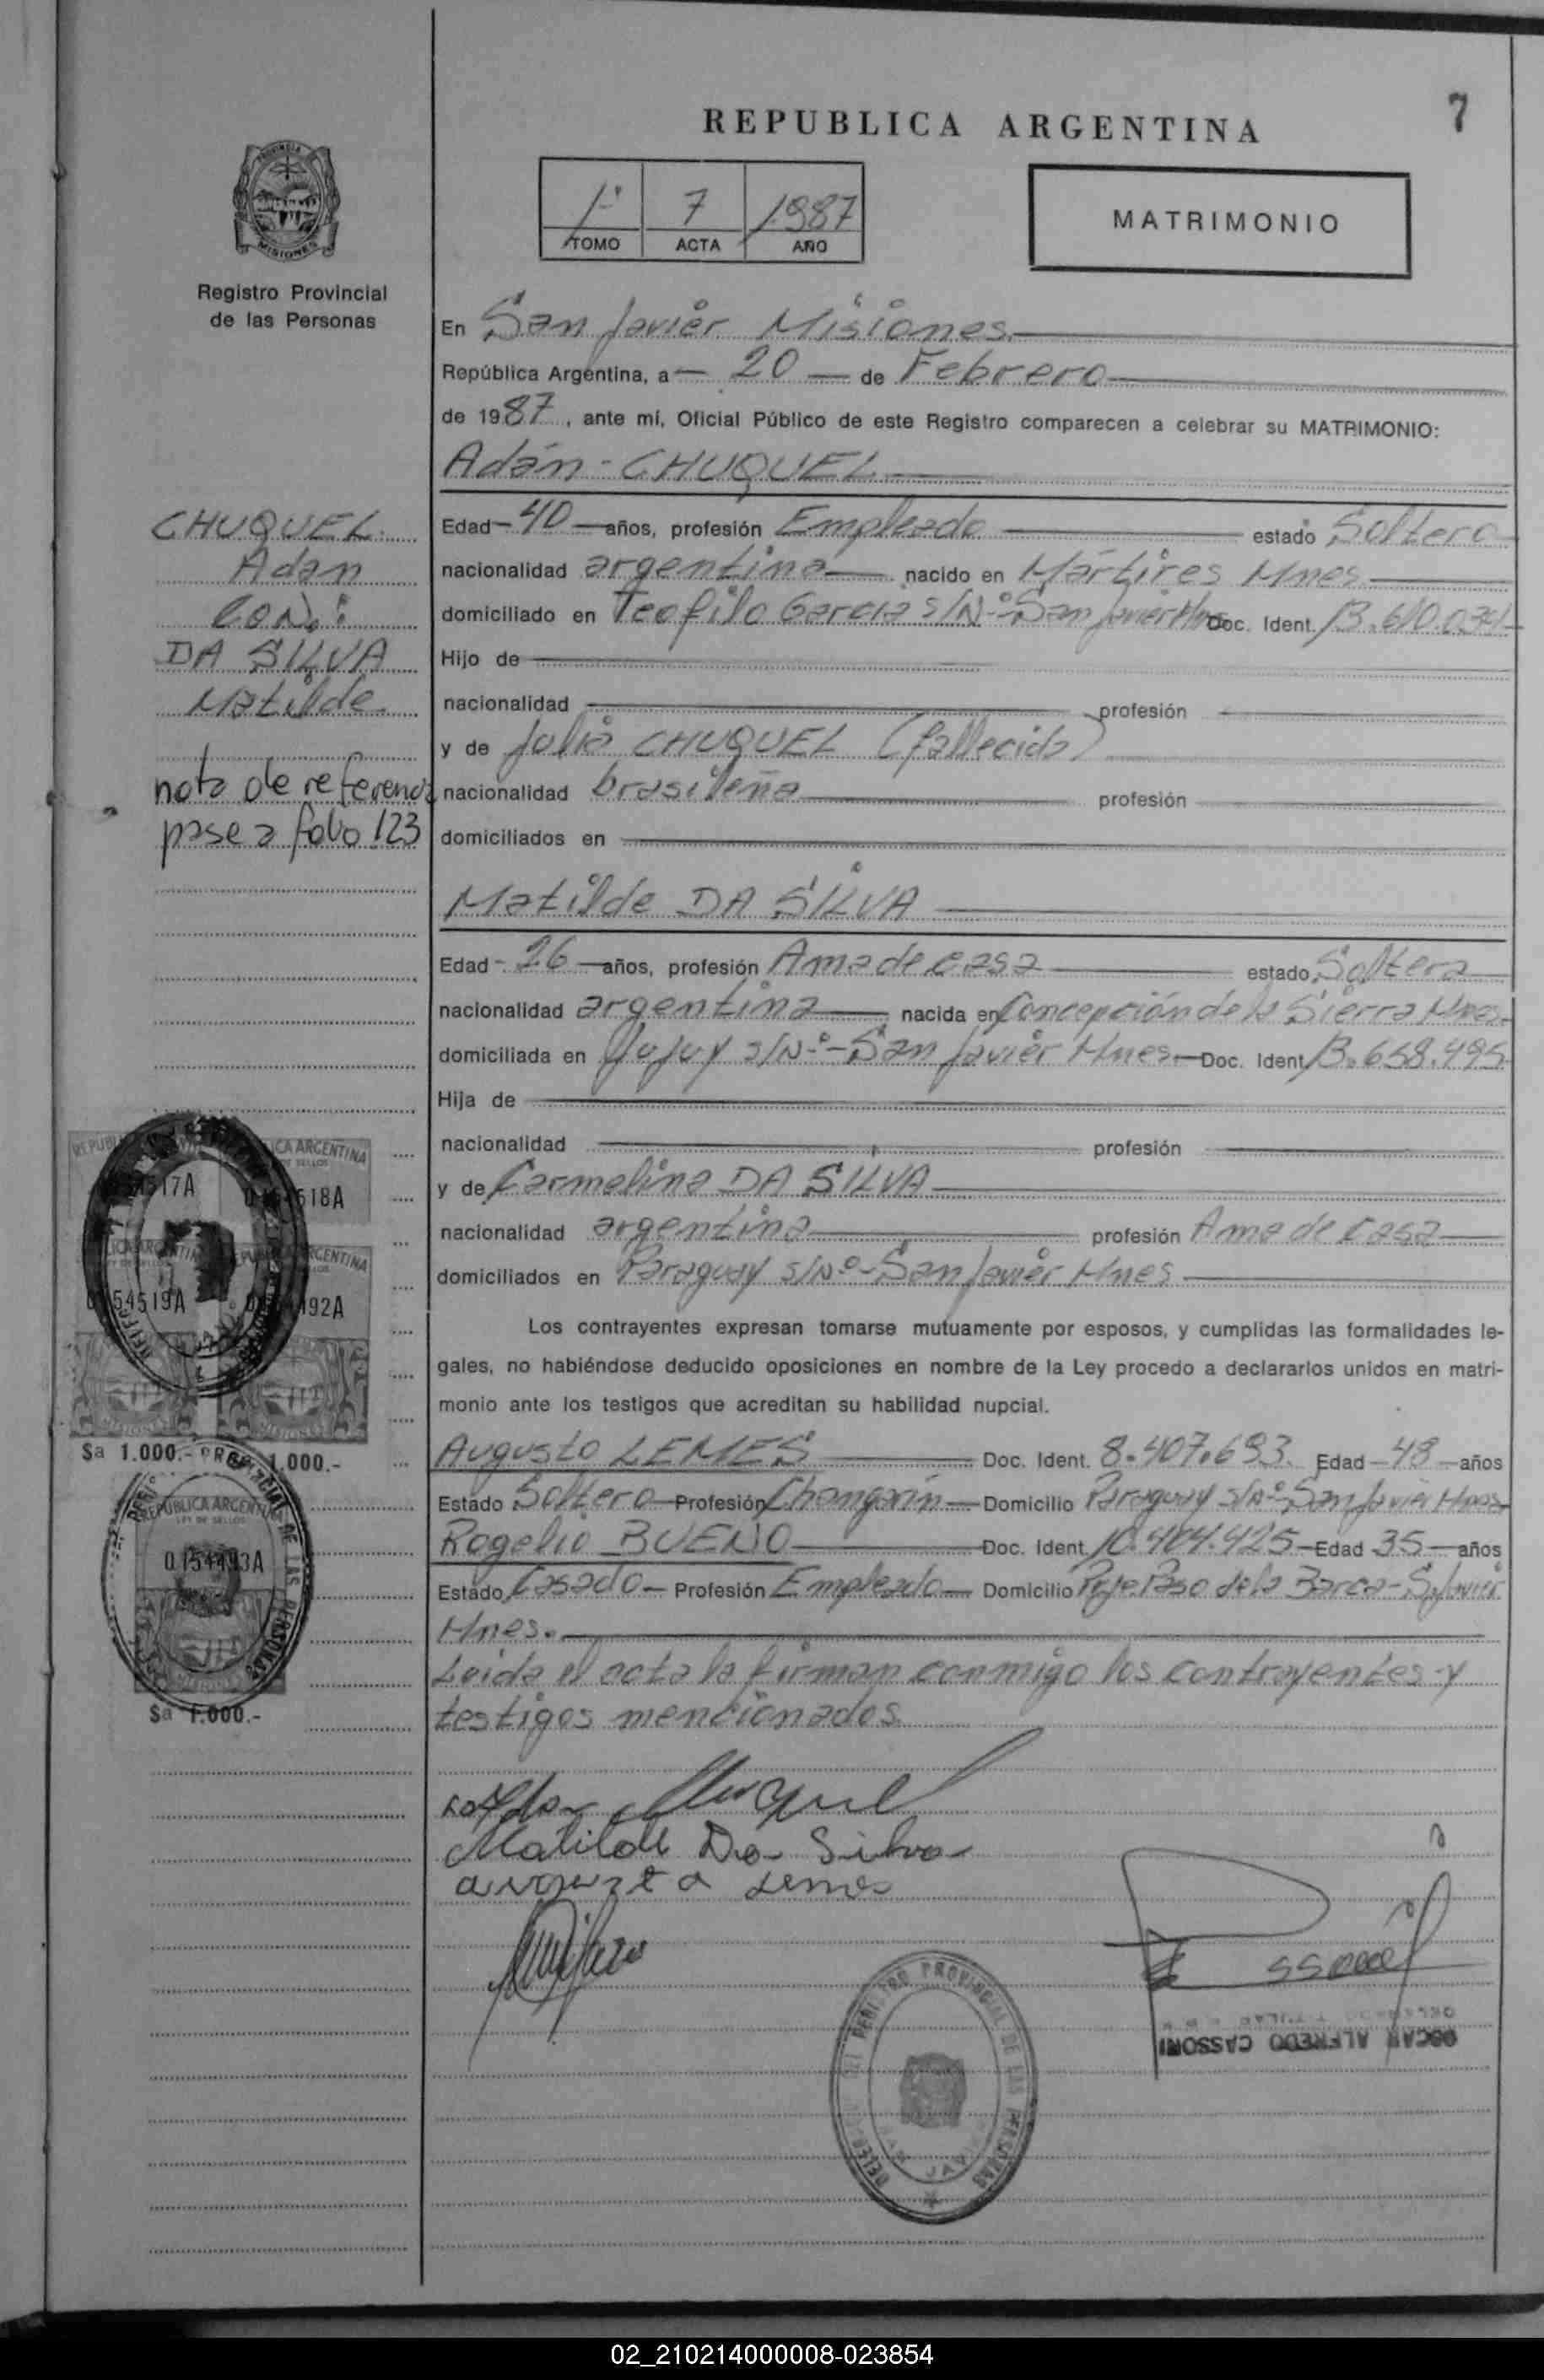 7
REPUBLICA ARGENTINA
1º 7 1987
TOMO ACTA AÑO
MATRIMONIO
PROVINCIA
MISIONES
Registro Provincial
de las Personas
En San Javier Misiones
República Argentina, a 20 de Febrero
de 1987, ante mí, Oficial Público de este Registro comparecen a celebrar su MATRIMONIO:
Adán - CHUQUEL
Edad - 40 años, profesión Empleado estado Soltero
nacionalidad argentina nacido en Mártires Mnes
domiciliado en Teofilo Garcia S/Nº San Javier Mnes Doc. Ident.
Hijo de
nacionalidad profesión
y de Julia CHUQUEL (fallecida)
nacionalidad brasileña profesión
domiciliados en
Matilde DA SILVA
Edad - 26 años, profesión Ama de casa estado Soltera
nacionalidad argentina nacida en Concepción de la Sierra Mnes.
domiciliada en Jujuy S/Nº - San Javier Mnes - Doc. Ident. 13.658.495
Hija de
nacionalidad profesión
y de Carmelina DA SILVA
nacionalidad argentina profesión Ama de Casa
domiciliados en Paraguay S/Nº - San Javier Mnes
Los contrayentes expresan tomarse mutuamente por esposos, y cumplidas las formalidades le-
gales, no habiéndose deducido oposiciones en nombre de la Ley procedo a declararlos unidos en matri-
monio ante los testigos que acreditan su habilidad nupcial.
Augusto LEMES Doc. Ident. 8.407.693 Edad - 48 - años
Estado Soltero - Profesión Changarín - Domicilio Paraguay S/Nº San Javier Mnes
Rogelio BUENO Doc. Ident. 10.484.425 - Edad 35 - años
Estado Casado - Profesión Empleado - Domicilio Pje. Paso de la Barca - S. Javier
Mnes.
Leida el acta la firman conmigo los contrayentes y
testigos mencionados
CHUQUEL
Adan
CON:
DA SILVA
Matilde
nota de referencia
pase a folio 123
REPUBLICA ARGENTINA
517A 518A
54519A 492A
$a 1.000.- 1.000.-
REPUBLICA ARGENTINA
LEY DE SELLOS
0154493A
$a 1.000.-
Chuquel
Matilde Da Silva
augusto Lemes
PROVINCIAL DE LAS PERSONAS
SAN JAVIER
OSCAR ALFREDO CASSONI
02_210214000008-023854